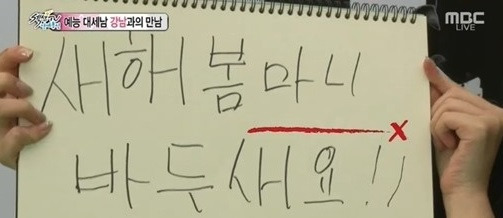 예능 대세남 강남과의 만남
MBC
LIVE
새해 봄마니
바두새요!!